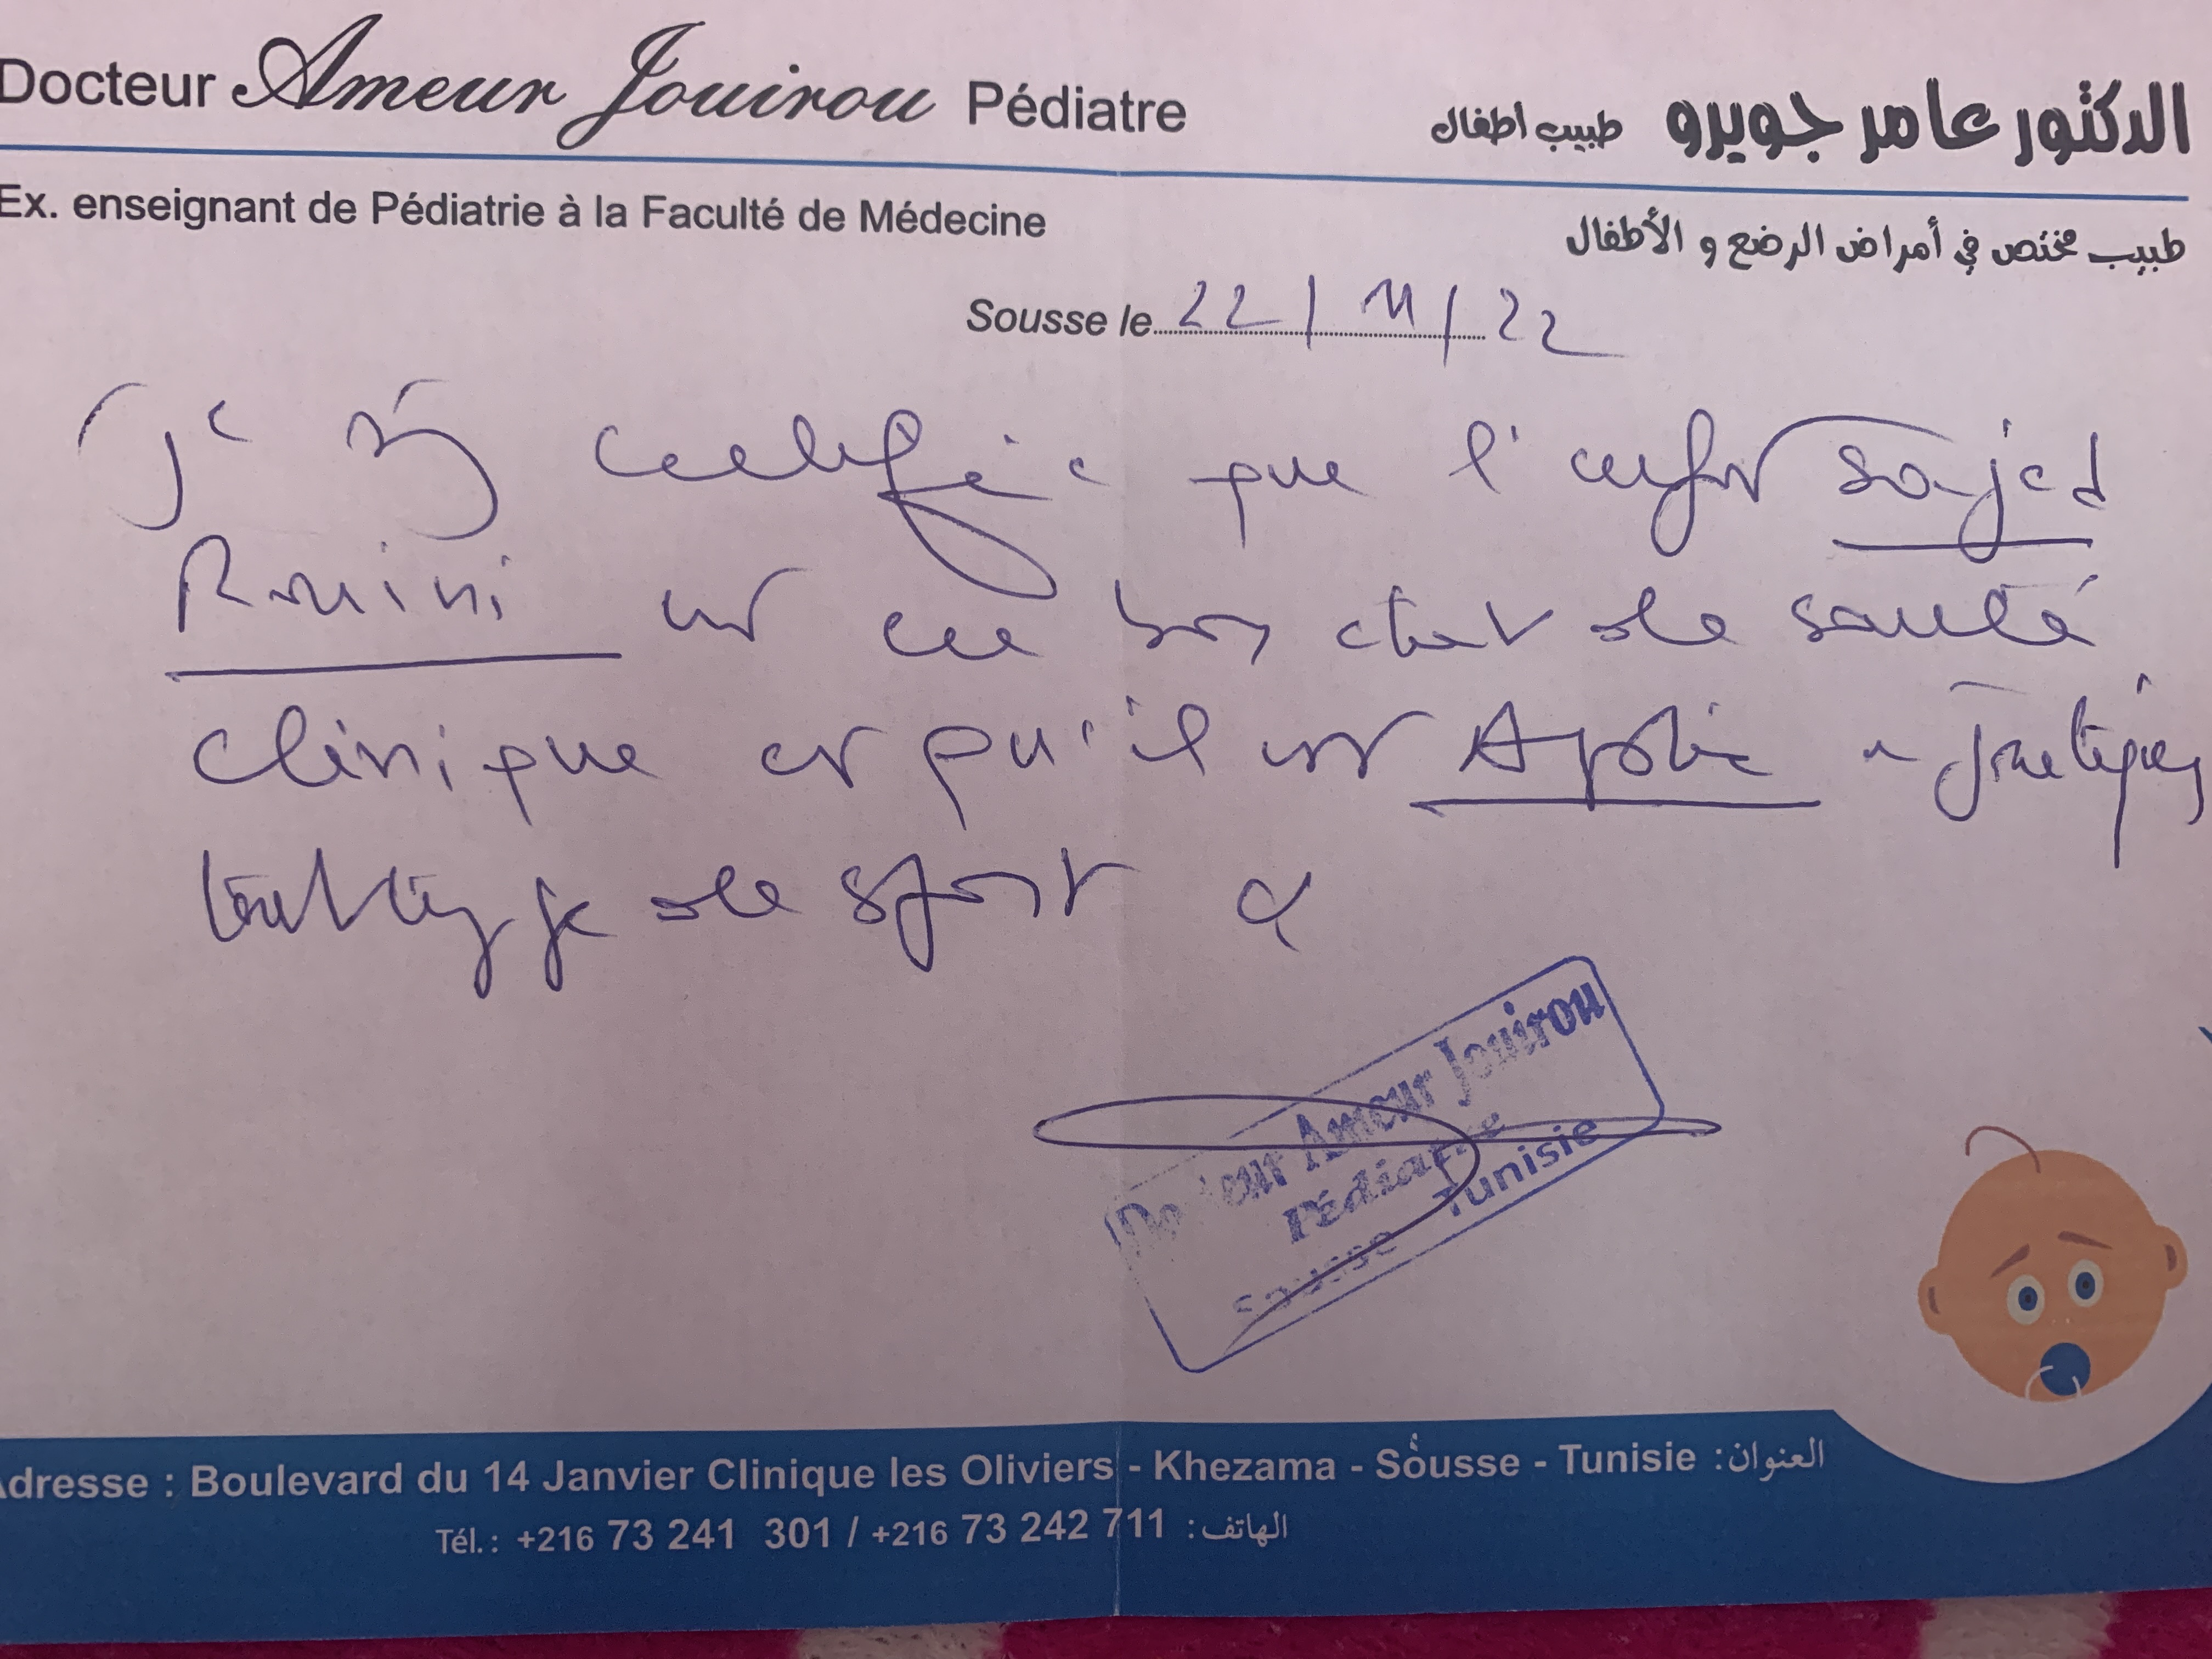 Docteur Ameur Jouirou Pédiatre
الدكتور عامر جويرو طبيب اطفال
Ex. enseignant de Pédiatrie à la Faculté de Médecine
طبيب مختص في أمراض الرضع و الأطفال
Sousse le 22/11/22
certifie que l'enfant Sajed
Rouini est en bon état de santé
clinique et qu'il est Apte à pratiquer
de sport
Docteur Ameur Jouirou
Pédiatre
Sousse Tunisie
Adresse : Boulevard du 14 Janvier Clinique les Oliviers - Khezama - Sousse - Tunisie العنوان:
Tél.: +216 73 241 301 / +216 73 242 711 الهاتف: